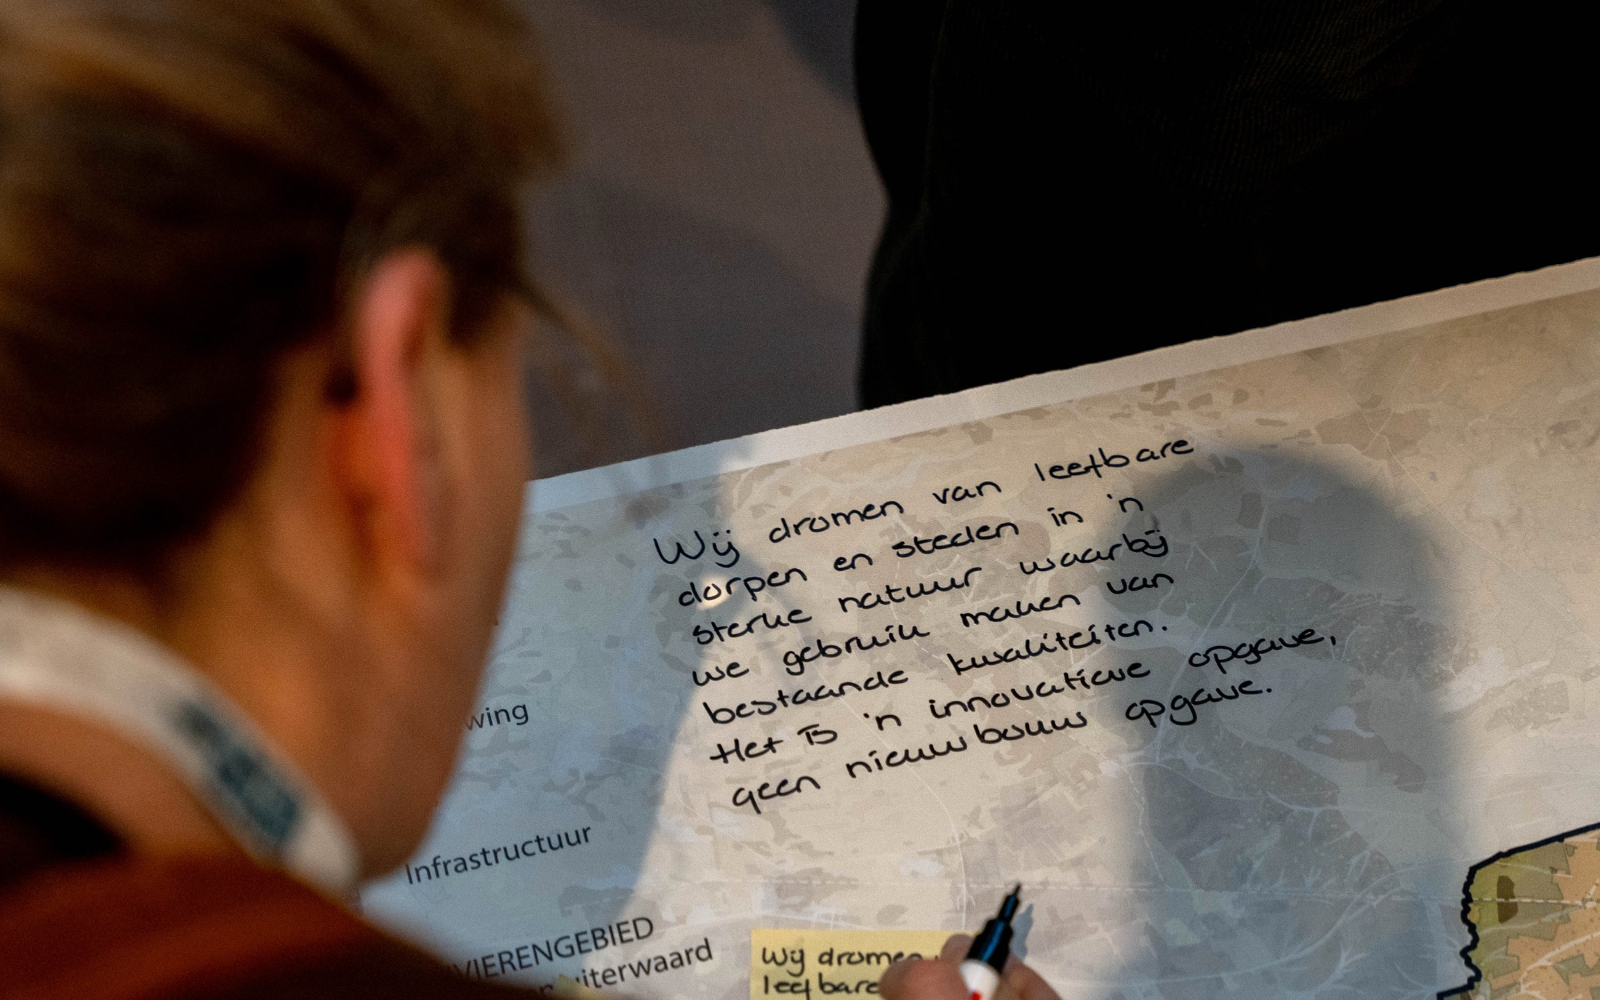 Wij dromen van leefbare
dorpen en steden in 'n
sterke natuur waarbij
we gebruik maken van
bestaande kwaliteiten.
Het is 'n innovatieve opgave,
geen nieuwbouw opgave.
wing
Infrastructuur
VIERENGEBIED
uiterwaard
Wij dromen
leefbare